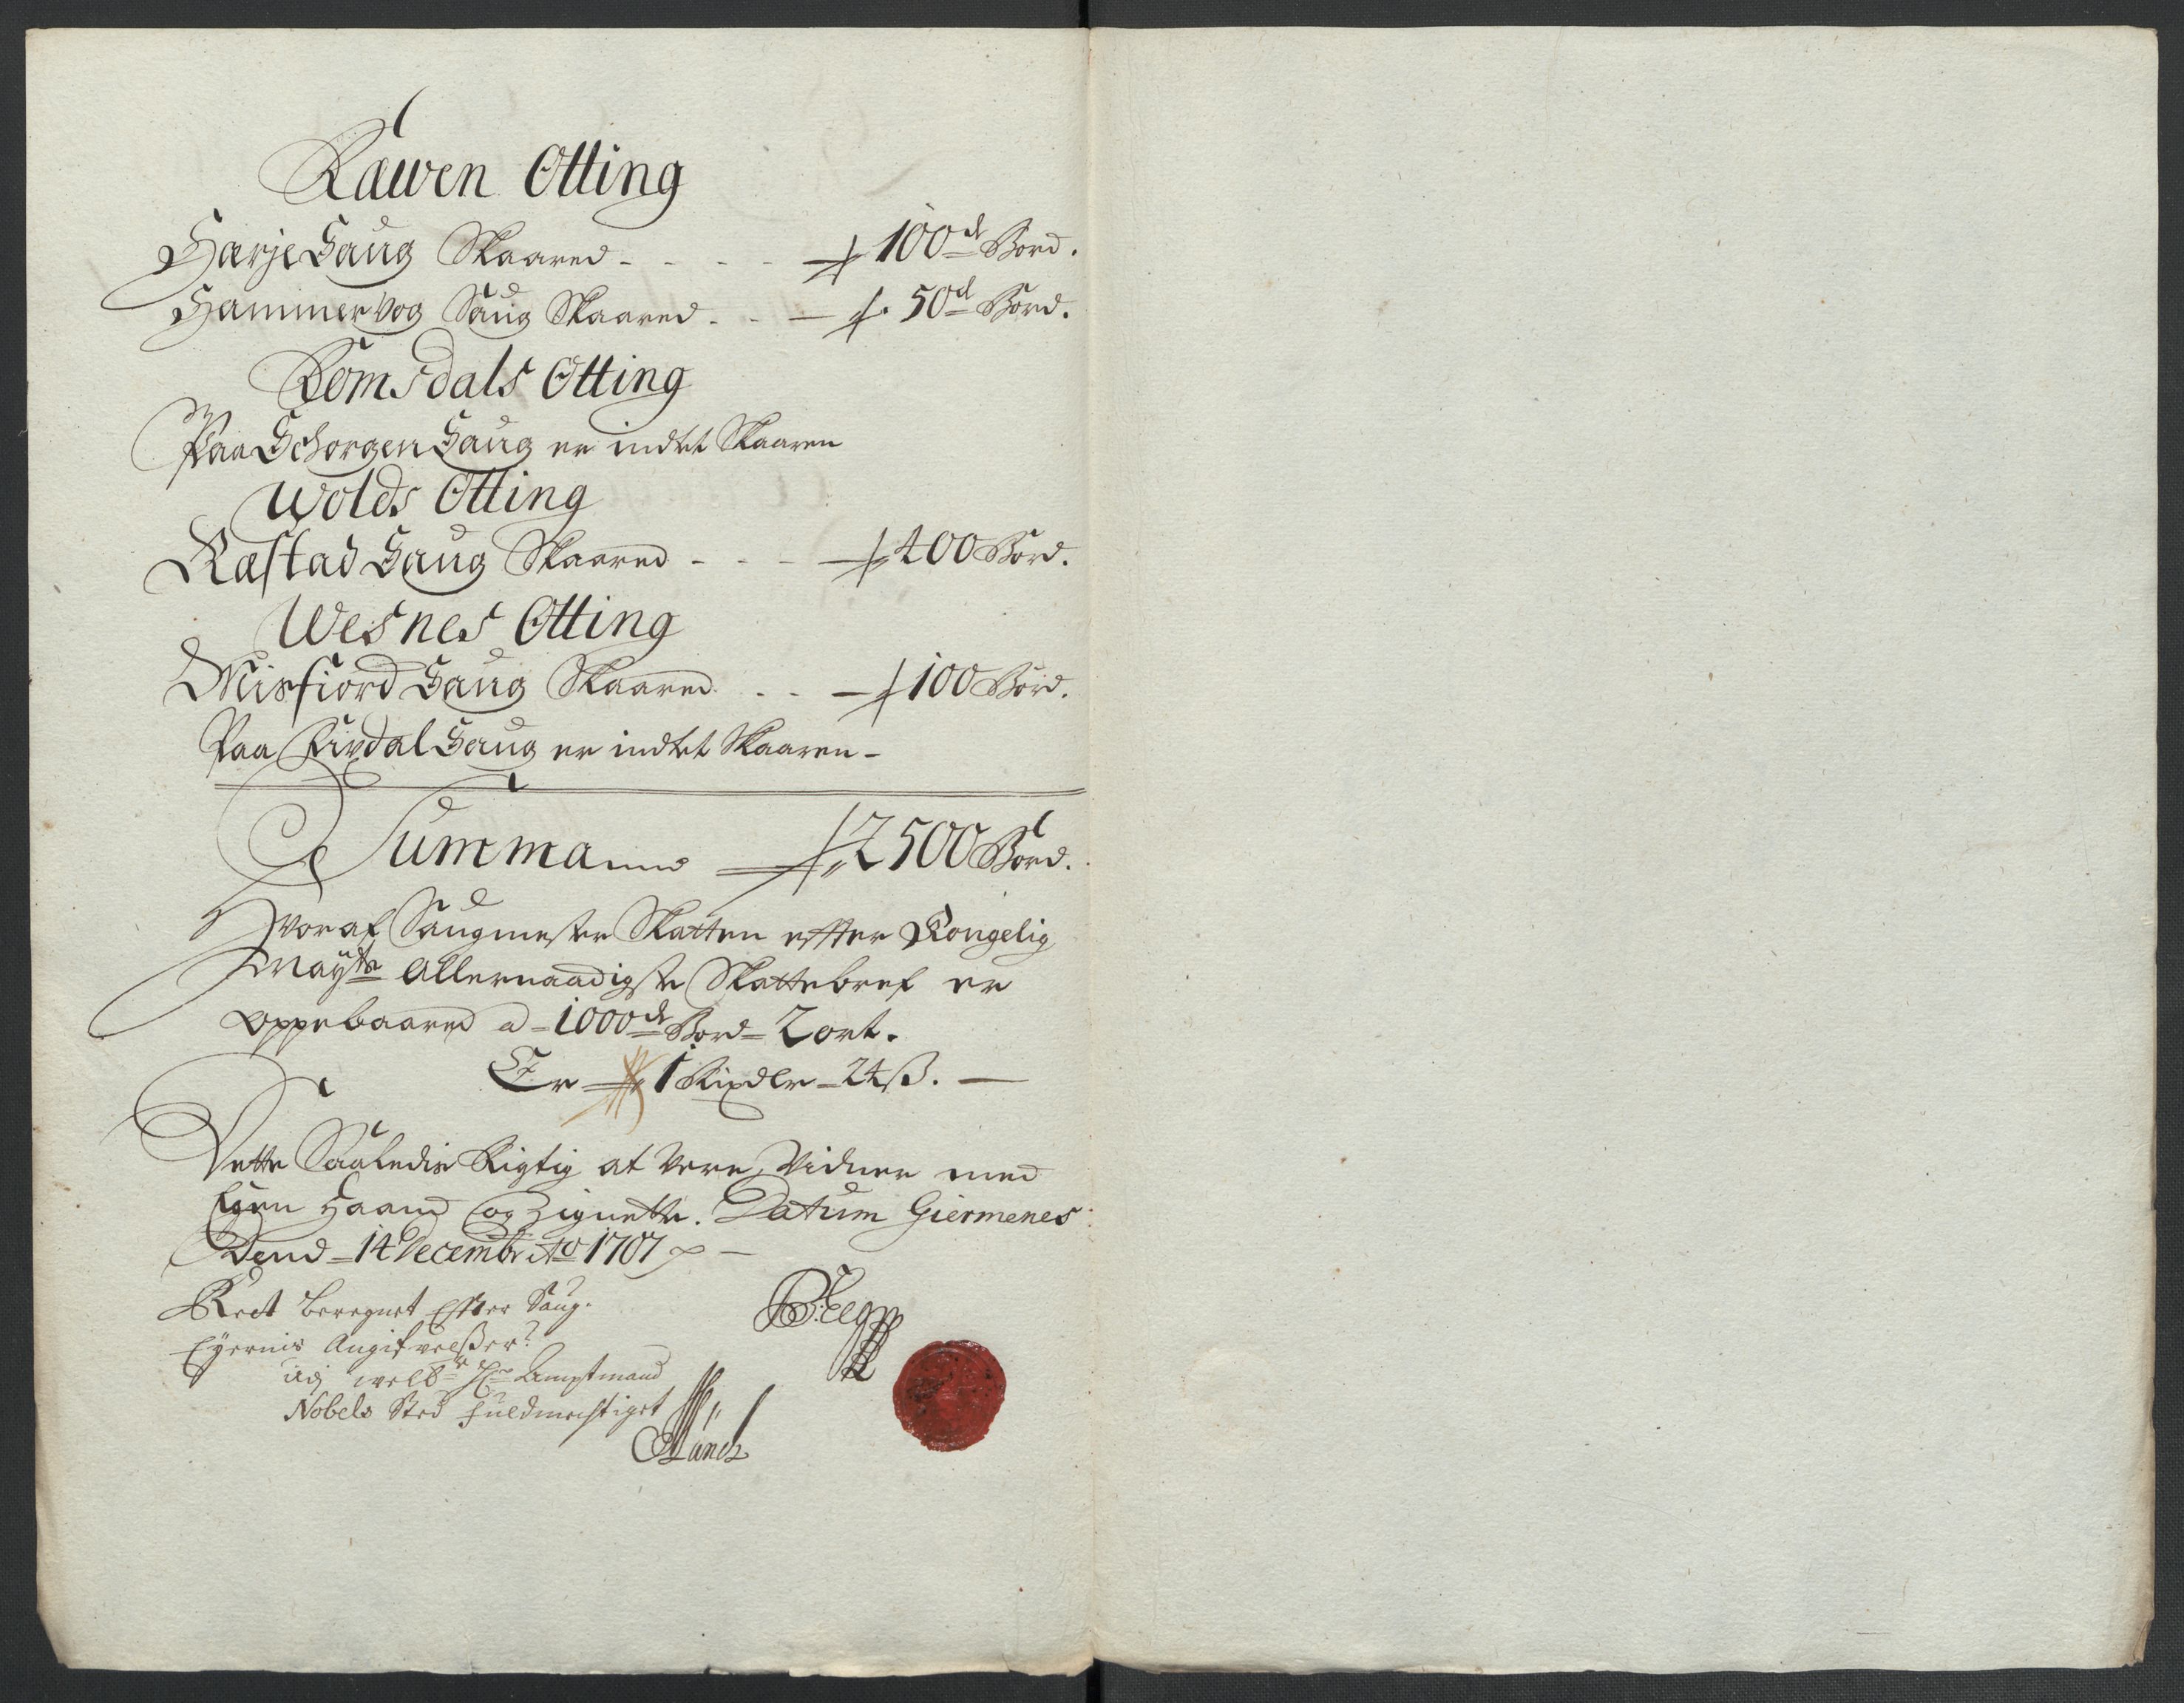 Rawen Otting
Harje Saug Skaared - - - - 100de Bord.
Hammervog Saug Skaared - - 50de Bord.
Romsdals Otting
Paa Schorgen Saug er indtet Skaaren
Wolds Otting
Ræstad Saug Skaared - - - 400 Bord.
Wesnes Otting
Misfiord Saug Skaared - - 100 Bord.
Paa Firdal Saug er indtet Skaaren -
Summa 2500 Bord.
Hvoraf Saugmester Skatten efter Kongelig
Mayts Allernaadigste Skattebref er
oppebaared a 1000de Bord 2 ort.
Er 1 Rixdlr 24 ß.
Dette Saaledis Rigtig at Vere, Vidner med
Egen Haand og Zignette. Datum Giermenes
Dend 14 Decembr Ao 1707
Ret beregnet Efter Saug-
Eyernis Angifvelßer
udj welbr Hr Amptmand
Nobels Sted fuldmechtiget
Munch